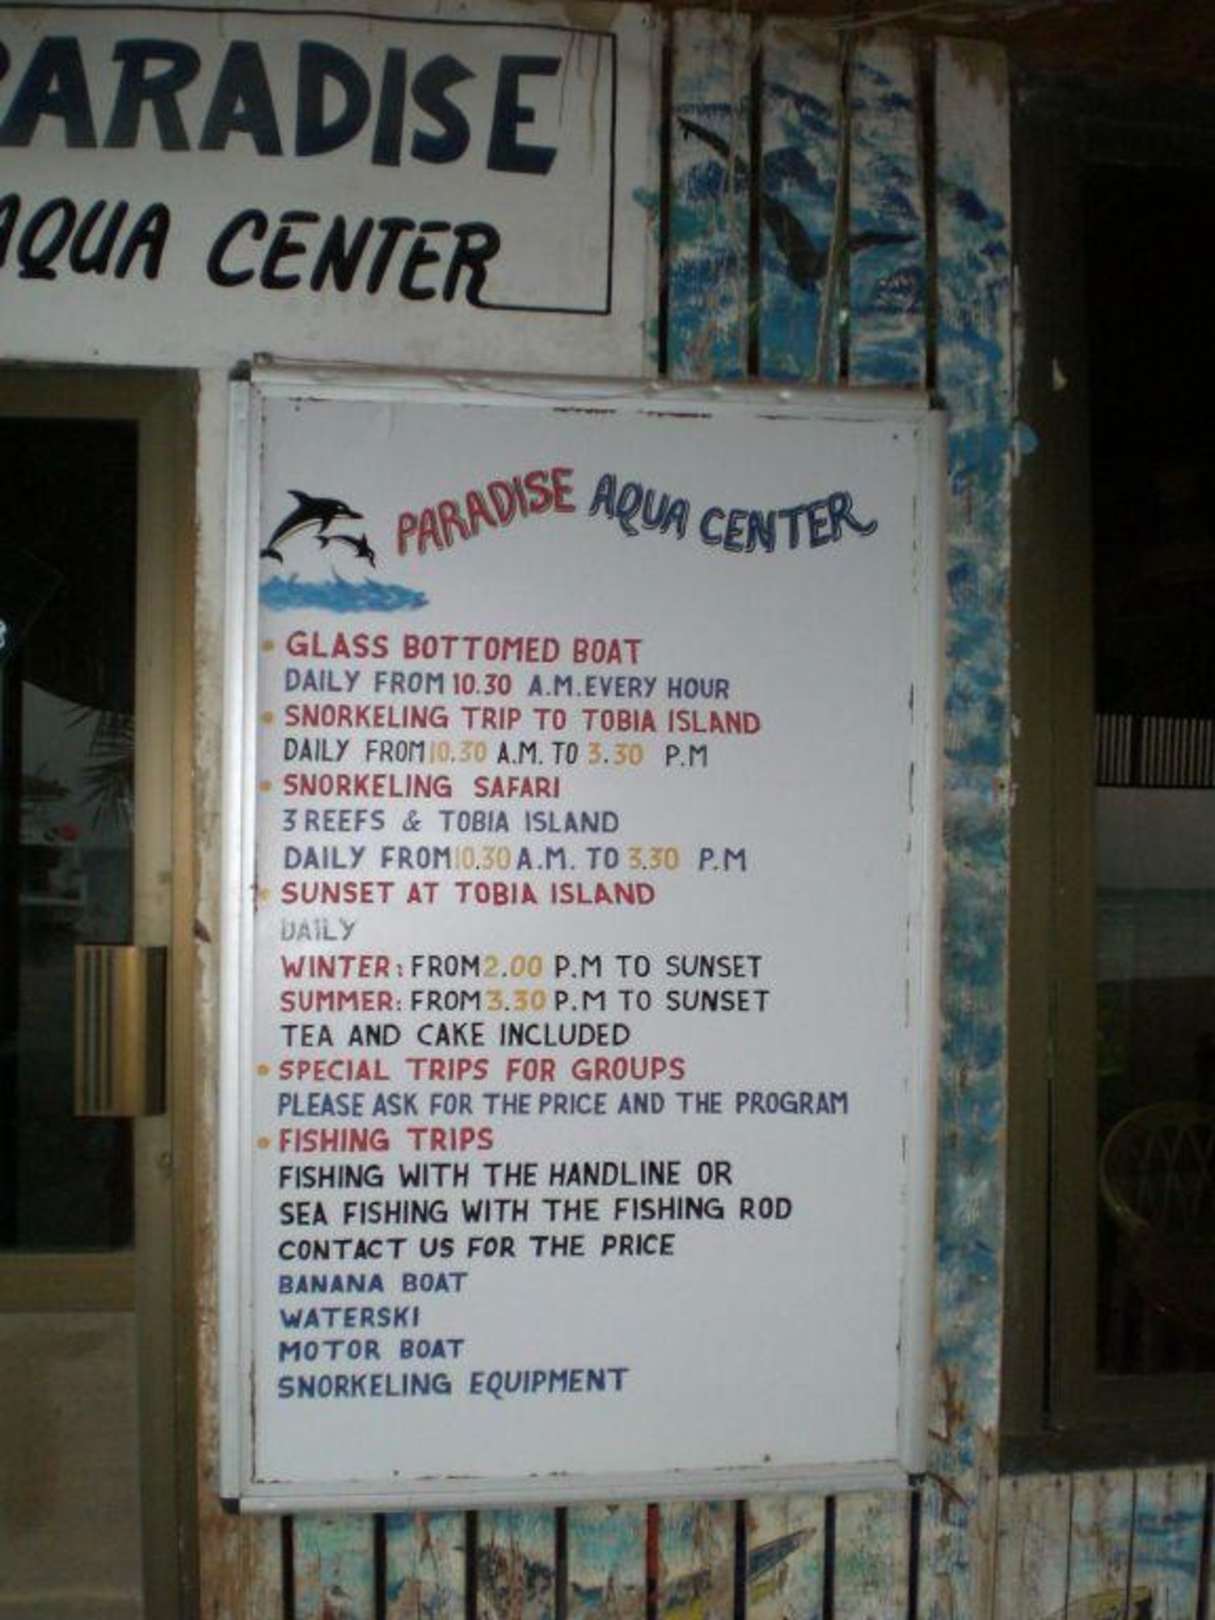 PARADISE
AQUA CENTER
PARADISE AQUA CENTER
GLASS BOTTOMED BOAT
DAILY FROM 10.30 A.M. EVERY HOUR
SNORKELING TRIP TO TOBIA ISLAND
DAILY FROM 10.30 A.M. TO 3.30 P.M
SNORKELING SAFARI
3 REEFS & TOBIA ISLAND
DAILY FROM 10.30 A.M. TO 3.30 P.M
SUNSET AT TOBIA ISLAND
DAILY
WINTER: FROM 2.00 P.M TO SUNSET
SUMMER: FROM 3.30 P.M TO SUNSET
TEA AND CAKE INCLUDED
SPECIAL TRIPS FOR GROUPS
PLEASE ASK FOR THE PRICE AND THE PROGRAM
FISHING TRIPS
FISHING WITH THE HANDLINE OR
SEA FISHING WITH THE FISHING ROD
CONTACT US FOR THE PRICE
BANANA BOAT
WATERSKI
MOTOR BOAT
SNORKELING EQUIPMENT